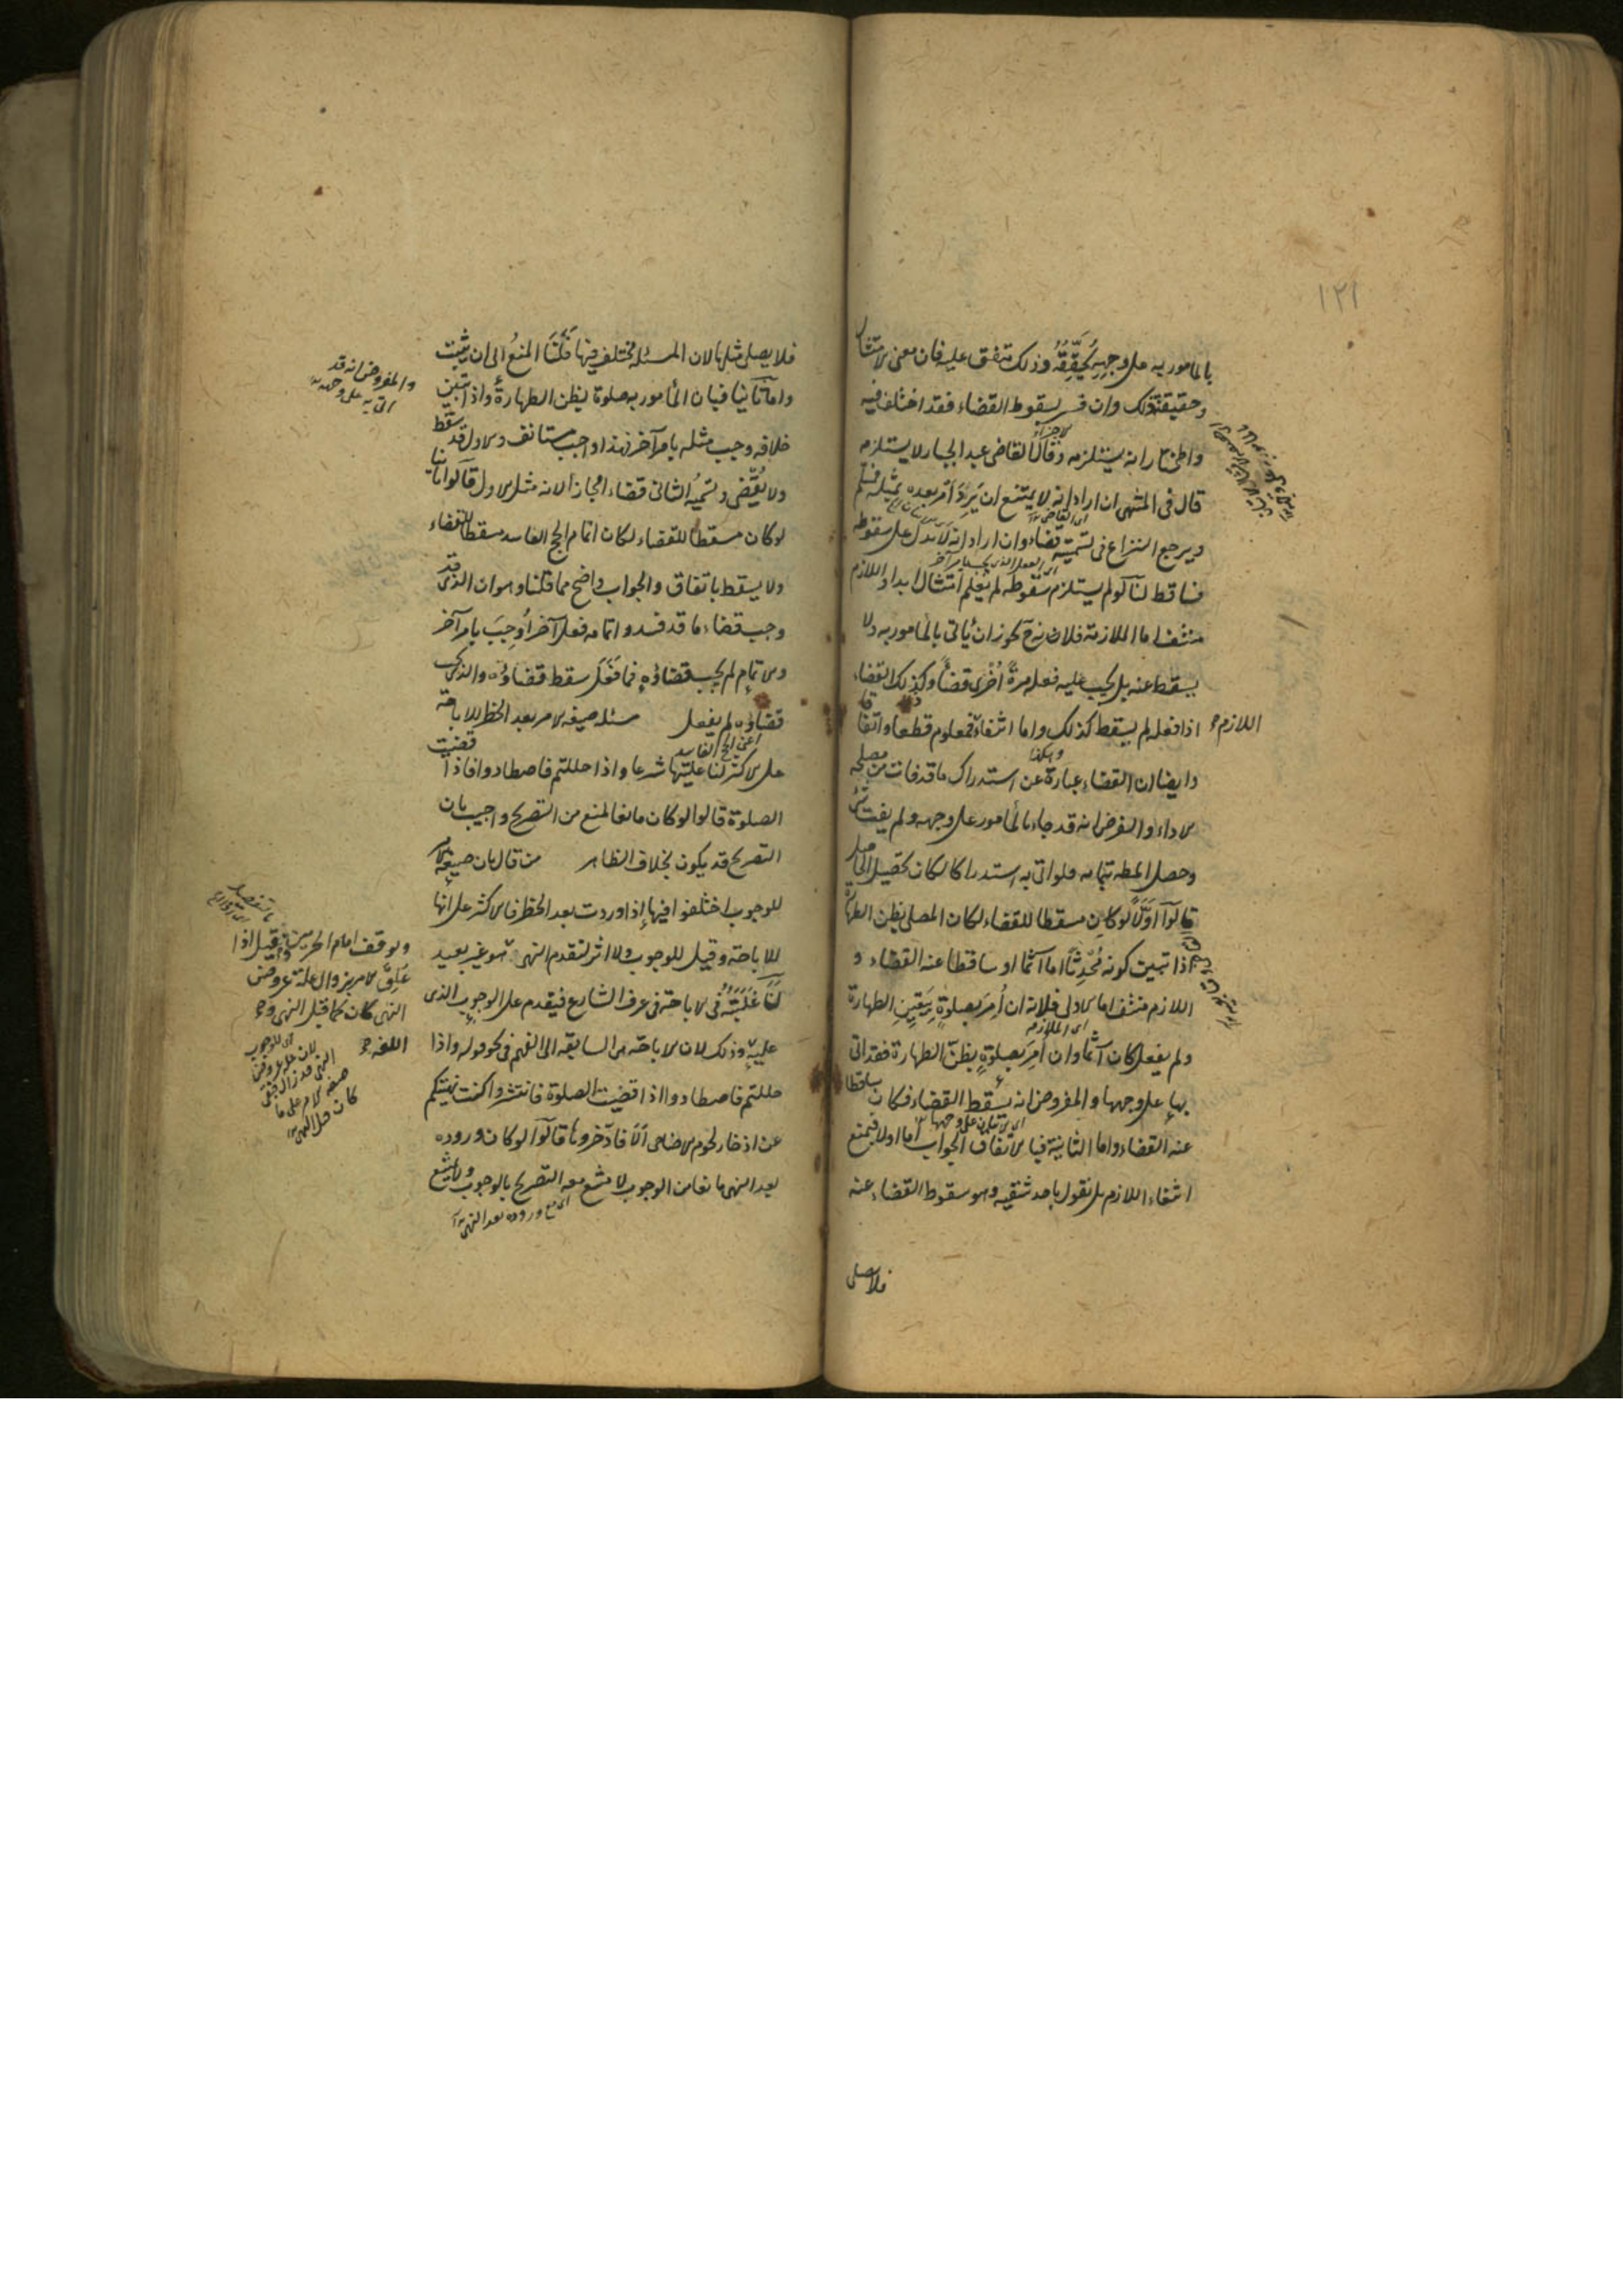 ١٢١
بالمامور به على وجهه يحققه وذلك متفق عليه فان معنى الامتثال
وحقيقته ذلك وان فسر بسقوط القضاء فقد اختلف فيه
والمختار انه يستلزمه وقال القاضى عبد الجبار لا يستلزمه
قال فى المنتهى ان اراد انه لا يمتنع ان يرد امر بعده بمثله فمسلم
ويرجع النزاع فى تسميته قضاء وان اراد انه لا يدل على سقوطه
فساقط لنا لو لم يستلزم سقوطه لم يعلم امتثال ابدا واللازم
منتف اما الملازمة فلانه ح يجوز ان يأتى بالمأمور به ولا
يسقط عنه بل يجب عليه فعله مرة اخرى قضاء وكذلك القضاء
اذا فعله لم يسقط كذلك واما انتفاء فمعلوم قطعا واتفاقا
اللازم
وايضا ان القضاء عبارة عن استدراك ما قد فات من مصلحة
الاداء والفرض انه قد جاء بالمأمور على وجهه ولم يفت شئ
وحصل المطه بتمامه فلو اتى به استدراكا لكان تحصيل الحاصل
قالوا اولا لو كان مسقطا للقضاء لكان المصلى بظن الطهارة
اذا تبين كونه محدثا اما آثما او ساقطا عنه القضاء و
اللازم منتف اما الاولى فلانه ان أمر بصلوة بيقين الطهارة
ولم يفعل كان آثما وان أمر بصلوة بظن الطهارة فقد اتى
بها على وجهها والمفروض انه يسقط القضاء فكان ساقطا
عنه القضاء واما الثانية فبالاتفاق الجواب اما اولا فبمنع
انتفاء اللازم بل نقول باحد شقيه وهو سقوط القضاء عنه
فلا يصلى
فلا يصلى مثلها لان المسئلة مختلف فيها فلنا المنع الى ان يثبت
واما ثانيا فبان المأمور به صلوة بظن الطهارة واذا تبين
خلافه وجب مثله بامر آخر فهذا واجب مستانف والاول قد سقط
ولا يقضى وتسمية الثانى قضاء مجاز لانه مثل الاول قالوا ثانيا
لو كان مسقطا للقضاء لكان اتمام الحج الفاسد مسقطا للقضاء
ولا يسقط باتفاق والجواب واضح مما قلنا وهو ان الذى قد
وجب قضاء ما قد فسد واتمامه فعل آخر أوجب بامر آخر
والاتمام لم يجب قضاؤه فما فعل سقط قضاؤه والذى يجب
قضاؤه لم يفعل مسئله صيغة الامر بعد الحظر للاباحة
على الاكثر لنا غلبتها شرعا واذا حللتم فاصطادوا فاذا قضيت
الصلوة قالوا لو كان مانعا لمنع من التصريح واجيب بان
التصريح قد يكون بخلاف الظاهر من قال بان صيغة الامر
للوجوب اختلفوا فيها اذا وردت بعد الحظر فالاكثر على انها
للاباحة وقيل للوجوب ولا اثر لتقدم النهى وهو غير بعيد
لنا غلبته فى الاباحة فى عرف الشارع فيقدم على الوجوب الذى
عليه وذلك لان الاباحة هى السابقة الى الفهم فى نحو قوله واذا
حللتم فاصطادوا اذا قضيت الصلوة فانتشروا كنت نهيتكم
عن ادخار لحوم الاضاحى ألا فادخروها قالوا لو كان وروده
بعد النهى مانعا من الوجوب لامتنع معه التصريح بالوجوب ولا يمتنع
اى مع وروده بعد النهى
والمفروض انه قد
اتى به على وجهه
وتوقف امام الحرمين وقيل اذا
علق الامر بزوال علة عروض
النهى كان كما قبل النهى
اللغه